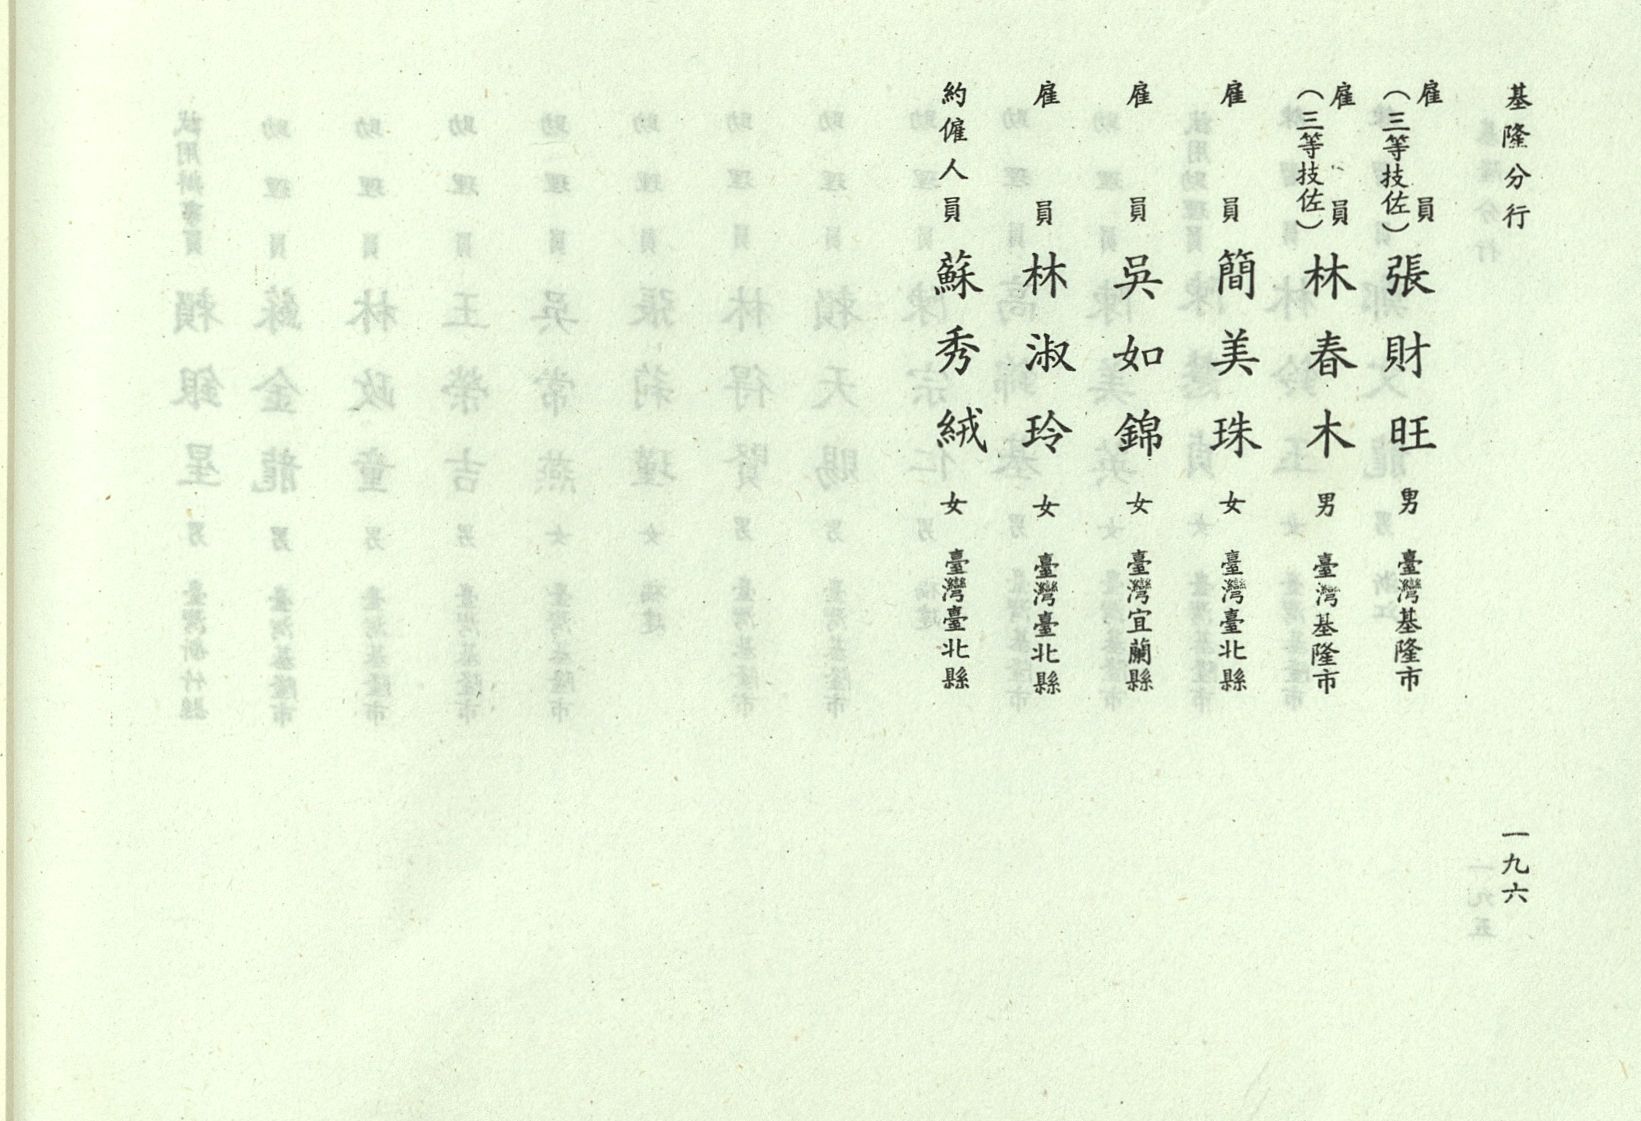 基隆分行
雇員（三等技佐）張財旺 男 臺灣基隆市
雇員（三等技佐）林春木 男 臺灣基隆市
雇員 簡美珠 女 臺灣臺北縣
雇員 吳如錦 女 臺灣宜蘭縣
雇員 林淑玲 女 臺灣臺北縣
約僱人員 蘇秀絨 女 臺灣臺北縣
一九六